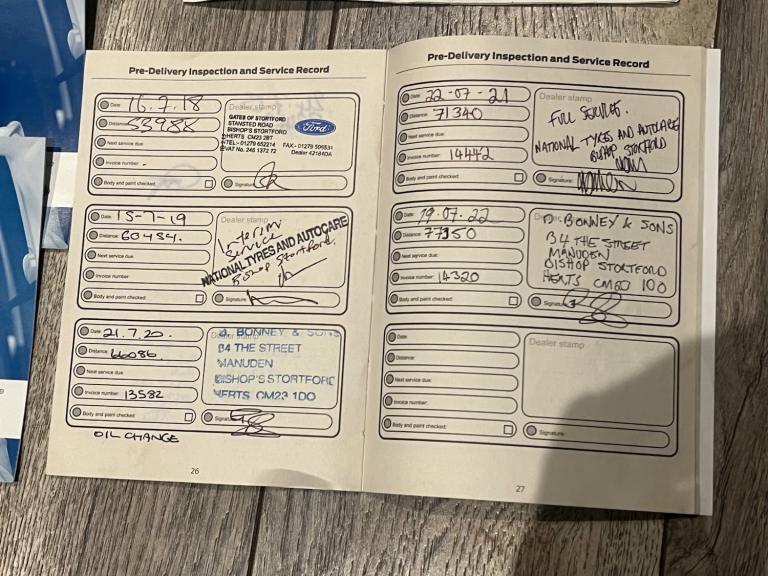 Pre-Delivery Inspection and Service Record
Date: 16.7.18
Distance: 53988
Next service due:
Invoice number: -
Body and paint checked:
Dealer stamp
GATES OF STORTFORD
STANSTED ROAD
BISHOP'S STORTFORD
HERTS CM23 2BT
TEL:- 01279 652214 FAX - 01279 506531
VAT No. 245 1372 72 Dealer 42184DA
Ford
Signature:
Date: 15-7-19
Distance: 60484.
Next service due:
Invoice number:
Body and paint checked:
Dealer stamp
Interim
Service
NATIONAL TYRES AND AUTOCARE
Bishop Stortford.
Signature:
Date: 21.7.20.
Distance: 66086
Next service due:
Invoice number: 13582
Body and paint checked:
Dealer stamp
D. BONNEY & SONS
B4 THE STREET
MANUDEN
BISHOP'S STORTFORD
HERTS CM23 1DO
Signature:
OIL CHANGE
26
Pre-Delivery Inspection and Service Record
Date: 22-07-21
Distance: 71340
Next service due:
Invoice number: 14442
Body and paint checked:
Dealer stamp
FULL SERVICE.
NATIONAL TYRES AND AUTOCARE
BISHOP STORTFORD
Signature:
Date: 19.07.22
Distance: 77350
Next service due:
Invoice number: 14320
Body and paint checked:
Dealer
D BONNEY & SONS
B4 THE STREET
MANUDEN
BISHOP STORTFORD
HERTS CM60 100
Signature:
Date:
Distance:
Next service due:
Invoice number:
Body and paint checked:
Dealer stamp
Signature:
27